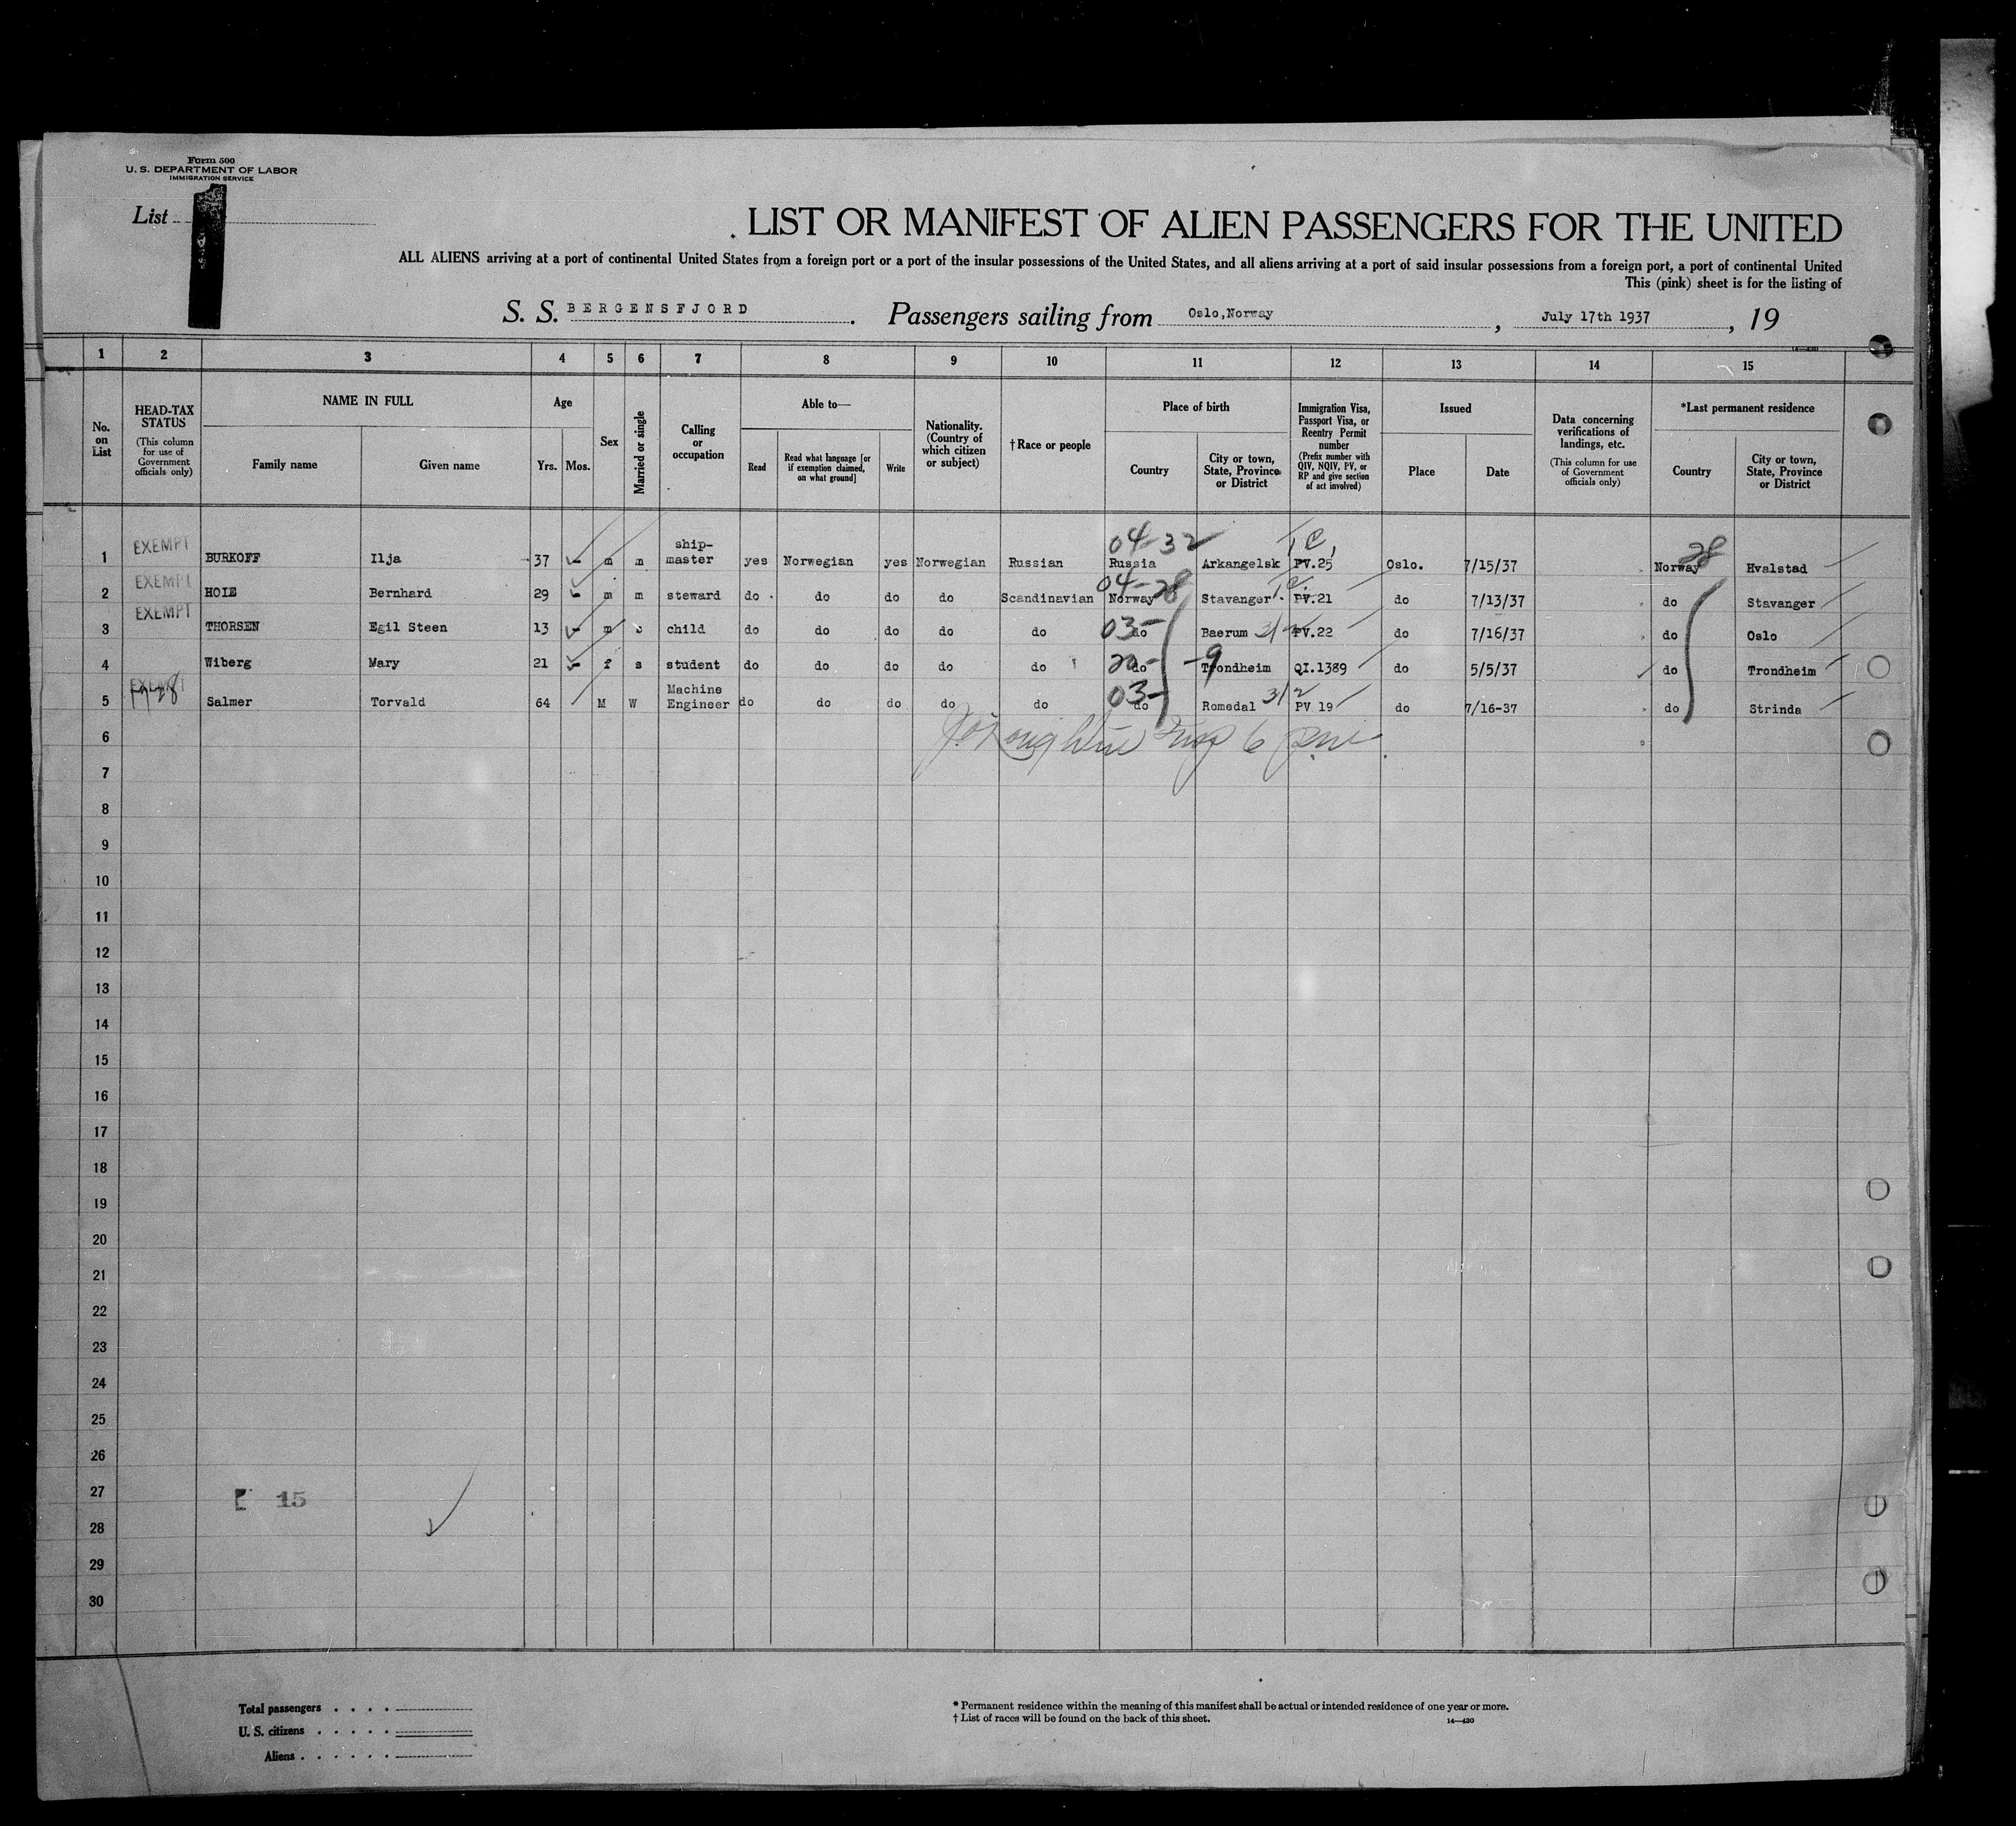 Form 500
U. S. DEPARTMENT OF LABOR
IMMIGRATION SERVICE
List
LIST OR MANIFEST OF ALIEN PASSENGERS FOR THE UNITED
ALL ALIENS arriving at a port of continental United States from a foreign port or a port of the insular possessions of the United States, and all aliens arriving at a port of said insular possessions from a foreign port, a port of continental United
This (pink) sheet is for the listing of
S. S. BERGENSFJORD. Passengers sailing from Oslo,Norway, July 17th 1937, 19
1 2 3 4 5 6 7 8 9 10 11 12 13 14 15
No. on List
HEAD-TAX STATUS
(This column for use of Government officials only)
NAME IN FULL
Family name
Given name
Age
Yrs. Mos.
Sex
Married or single
Calling or occupation
Able to—
Read
Read what language [or if exemption claimed, on what ground]
Write
Nationality. (Country of which citizen or subject)
†Race or people
Place of birth
Country
City or town, State, Province or District
Immigration Visa, Passport Visa, or Reentry Permit number
(Prefix number with QIV, NQIV, PV, or RP and give section of act involved)
Issued
Place
Date
Data concerning verifications of landings, etc.
(This column for use of Government officials only)
*Last permanent residence
Country
City or town, State, Province or District
04-32
1 EXEMPT BURKOFF Ilja 37 m m ship-master yes Norwegian yes Norwegian Russian Russia Arkangelsk PV.25 Oslo. 7/15/37 Norway 28 Hvalstad
04-28
2 EXEMPT HOIE Bernhard 29 m m steward do do do do Scandinavian Norway Stavanger PV.21 do 7/13/37 do Stavanger
3 EXEMPT THORSEN Egil Steen 13 m s child do do do do do 03- do Baerum 3/2 PV.22 do 7/16/37 do Oslo
4 Wiberg Mary 21 f s student do do do do do 20- do -9 Trondheim QI.1389 do 5/5/37 do Trondheim
5 EXEMPT Salmer Torvald 64 M W Machine Engineer do do do do do 03- do Romedal 3/2 PV 19 do 7/16-37 do Strinda
6
7
8
9
10
11
12
13
14
15
16
17
18
19
20
21
22
23
24
25
26
27
28
29
30
15
Total passengers
U. S. citizens
Aliens
* Permanent residence within the meaning of this manifest shall be actual or intended residence of one year or more.
† List of races will be found on the back of this sheet.
14—430